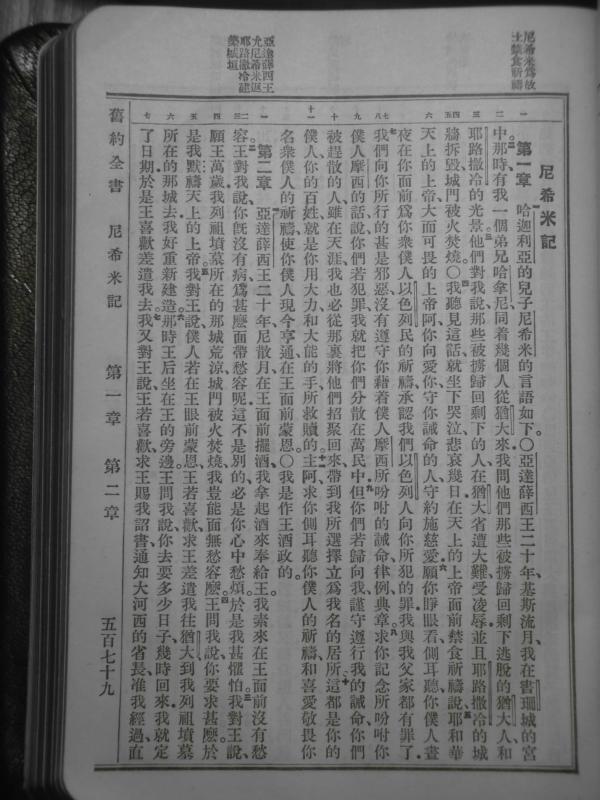 尼希米爲故
土禁食祈禱
亞達薛西王
允尼希米返
耶路撒冷建
築城垣
尼希米記
第一章 哈迦利亞的兒子尼希米的言語如下○亞達薛西王二十年基斯流月我在書珊城的宮
中那時有我一個弟兄哈拿尼同着幾個人從猶大來我問他們那些被擄歸回剩下逃脫的猶大人和
耶路撒冷的光景他們對我說那些被擄歸回剩下的人在猶大省遭大難受凌辱並且耶路撒冷的城
牆拆毀城門被火焚燒○我聽見這話就坐下哭泣悲哀幾日在天上的上帝面前禁食祈禱說耶和華
天上的上帝大而可畏的上帝阿你向愛你守你誡命的人守約施慈愛願你睜眼看側耳聽你僕人晝
夜在你面前爲你衆僕人以色列民的祈禱承認我們以色列人向你所犯的罪我與我父家都有罪了
我們向你所行的甚是邪惡沒有遵守你藉着僕人摩西所吩咐的誡命律例典章求你記念所吩咐你
僕人摩西的話說你們若犯罪我就把你們分散在萬民中但你們若歸向我謹守遵行我的誡命你們
被趕散的人雖在天涯我也必從那裏將他們招聚回來帶到我所選擇立爲我名的居所這都是你的
僕人你的百姓就是你用大力和大能的手所救贖的主阿求你側耳聽你僕人的祈禱和喜愛敬畏你
名衆僕人的祈禱使你僕人現今亨通在王面前蒙恩○我是作王酒政的
第二章 亞達薛西王二十年尼散月在王面前擺酒我拿起酒來奉給王我素來在王面前沒有愁
容王對我說你旣沒有病爲甚麽面帶愁容呢這不是別的必是你心中愁煩於是我甚懼怕我對王說
願王萬歲我列祖墳墓所在的那城荒涼城門被火焚燒我豈能面無愁容麽王問我說你要求甚麽於
是我默禱天上的上帝我對王說僕人若在王眼前蒙恩王若喜歡求王差遣我往猶大到我列祖墳墓
所在的那城去我好重新建造那時王后坐在王的旁邊王問我說你去要多少日子幾時回來我就定
了日期於是王喜歡差遣我去我又對王說王若喜歡求王賜我詔書通知大河西的省長准我經過直
舊約全書 尼希米記 第一章 第二章 五百七十九